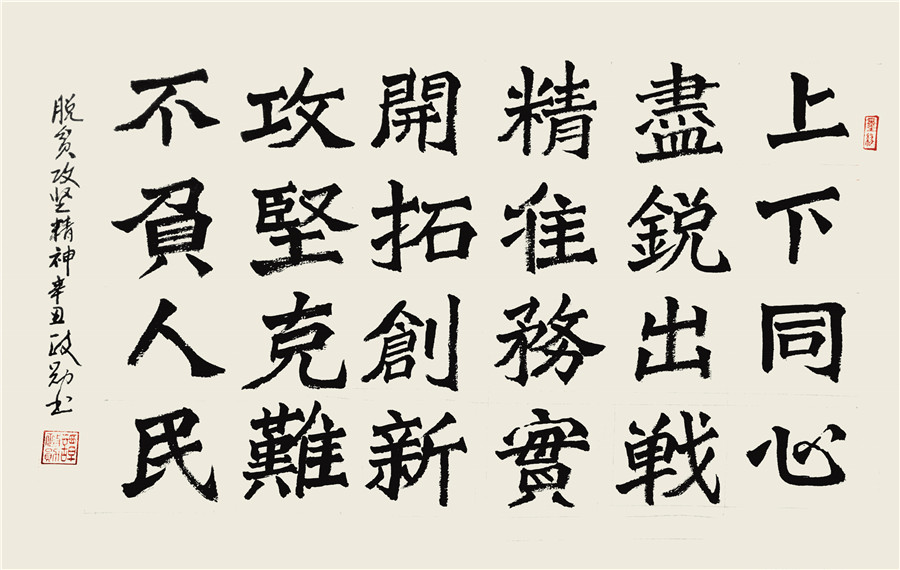 上下同心
盡鋭出戦
精准務實
開拓創新
攻堅克難
不負人民
脱贫攻坚精神辛丑政勋书